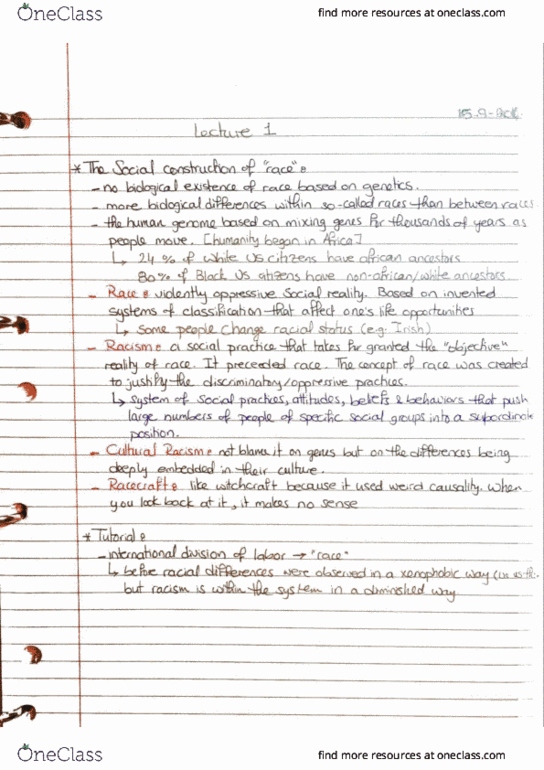 OneClass
find more resources at oneclass.com
Lecture 1
* The Social construction of "race":
- no biological existence of race based on genetics.
- more biological differences within so-called races than between races
- the human genome based on mixing genes for thousands of years as
people move. [humanity began in Africa]
↳ 24 % of White US citizens have african ancestors
80% of Black US citizens have non-african/white ancestors
- Race: violently oppressive Social reality. Based on invented
systems of classification that affect one's life opportunities
↳ Some people change racial status (e.g. Irish)
- Racism: a social practice that takes for granted the "objective"
reality of race. It preceeded race. The concept of race was created
to justify the discriminatory/oppressive practices.
↳ system of social practices, attitudes, beliefs & behaviors that push
large numbers of people of specific social groups into a subordinate
position.
- Cultural Racism: not blame it on genes but on the differences being
deeply embedded in their culture.
- Racecraft: like witchcraft because it used weird causality. When
you look back at it, it makes no sense
* Tutorial:
- international division of labor → "race"
↳ before racial differences were observed in a xenophobic way
but racism is within the system in a diminished way
OneClass
find more resources at oneclass.com